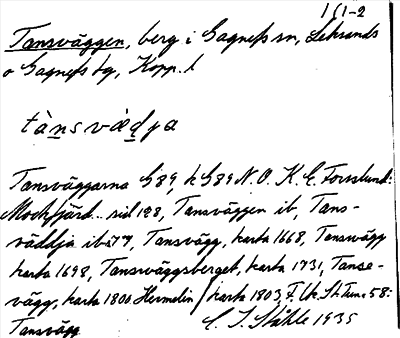 1(1-2
Tansväggen, berg i Gagnefs sn, Leksands
o Gagnefs tg, Kopp. l
tànsvädja
Tansväggarna G89, k G89 N.O. K. E. Forsslund:
Mockfjärd.. sid 128, Tansväggen ib, Tans-
väddja ib 77, Tansvägg, karta 1668, Tanswägg
karta 1698, Tanswäggsberget, karta 1731, Tanse-
vägg, karta 1800 Hermelin / karta 1803,
Tansvägg C. I. Ståhle 1935